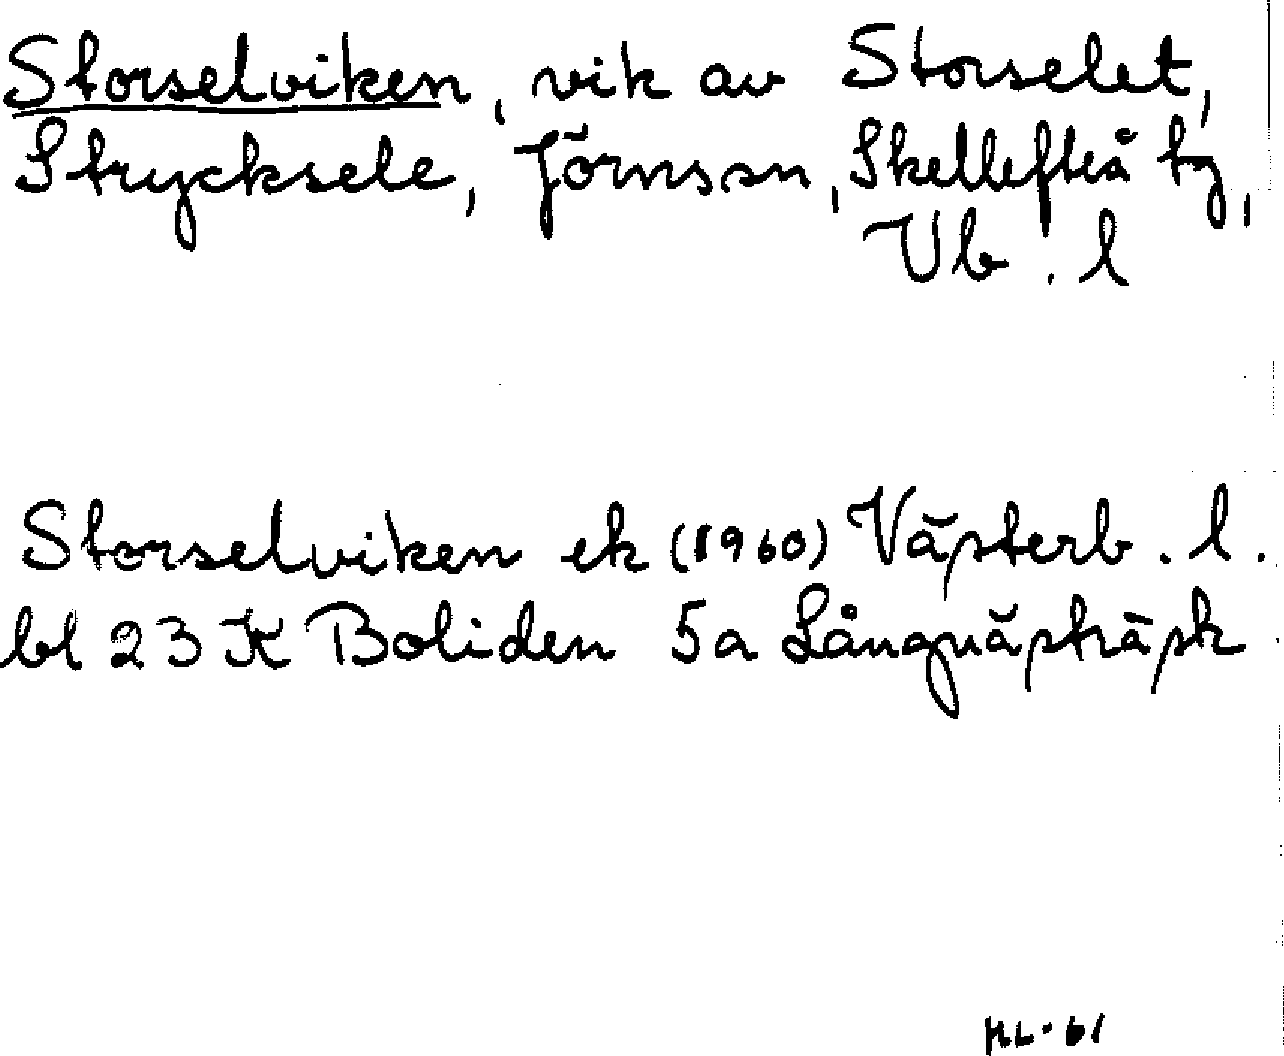 Storselviken, vik av Storselet,
Strycksele, Jörns sn, Skellefteå tg,
Vb. l
Storselviken ek (1960) Västerb. l.
bl 23 K Boliden 5a Långnästräsk
HL-61